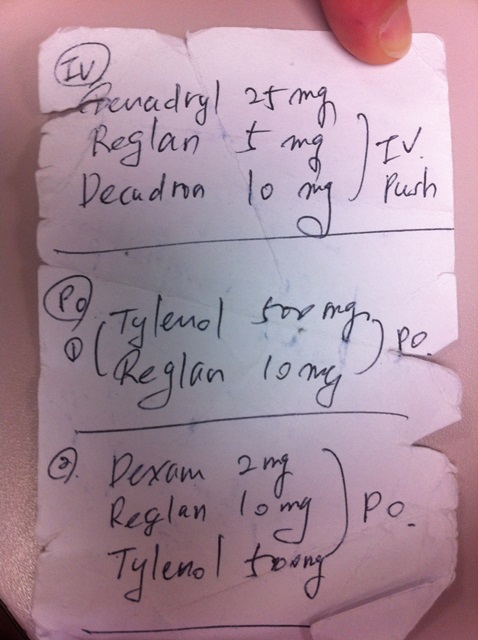 IV
Benadryl 25 mg
Reglan 5 mg
Decadron 10 mg
IV.
Push
PO
① Tylenol 500 mg
Reglan 10 mg
PO.
② Dexam 2 mg
Reglan 10 mg
Tylenol 500 mg
PO.